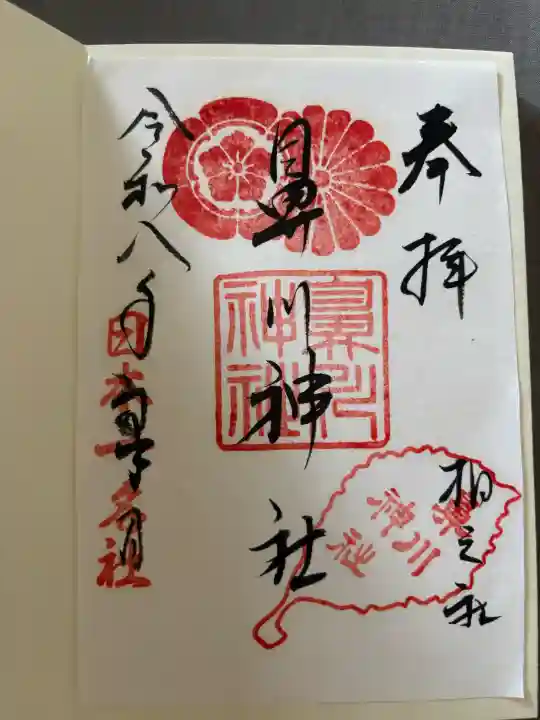 奉拝
柏之社
鼻川神社
鼻川神社
鼻川神社
令和八年
日本一名社